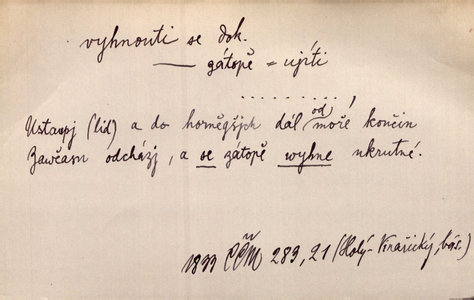 vyhnouti se dok.
—— zátopě = ujíti
. . . . . . . . ,
Ustaupj (lid) a do horněgšjch dál od moře končin
Zawčasu odcházj, a se zátopě wyhne ukrutné.
1833 ČČM 283, 21 (Holý-Vinařický, bás.)